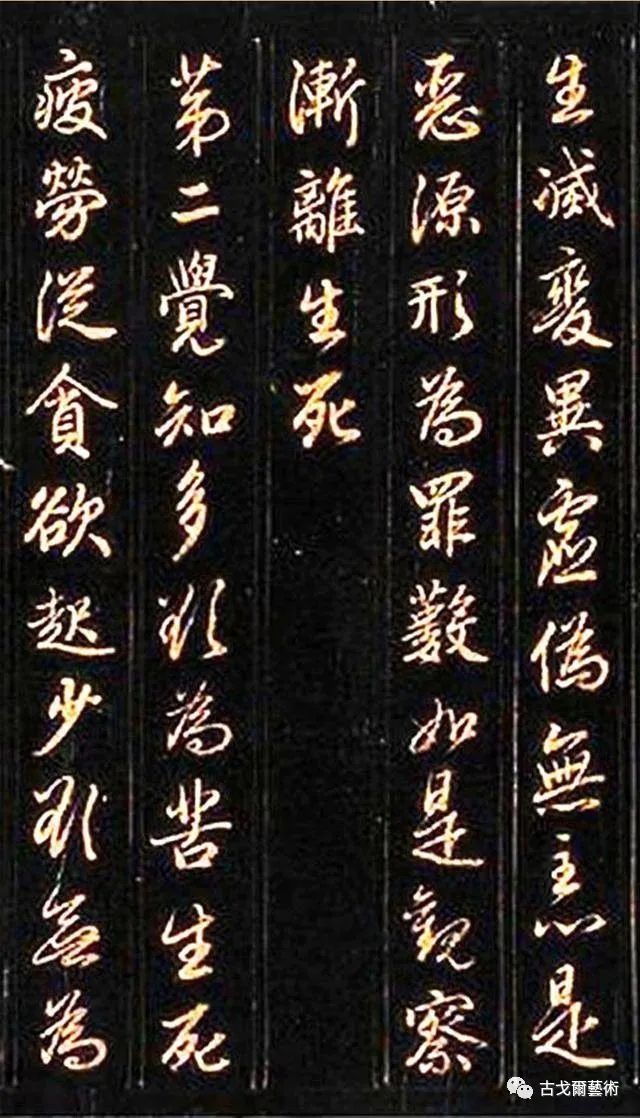 生滅變異虛偽無主心是
惡源形為罪藪如是觀察
漸離生死
第二覺知多欲為苦生死
疲勞從貪欲起少欲無為
古戈爾藝術